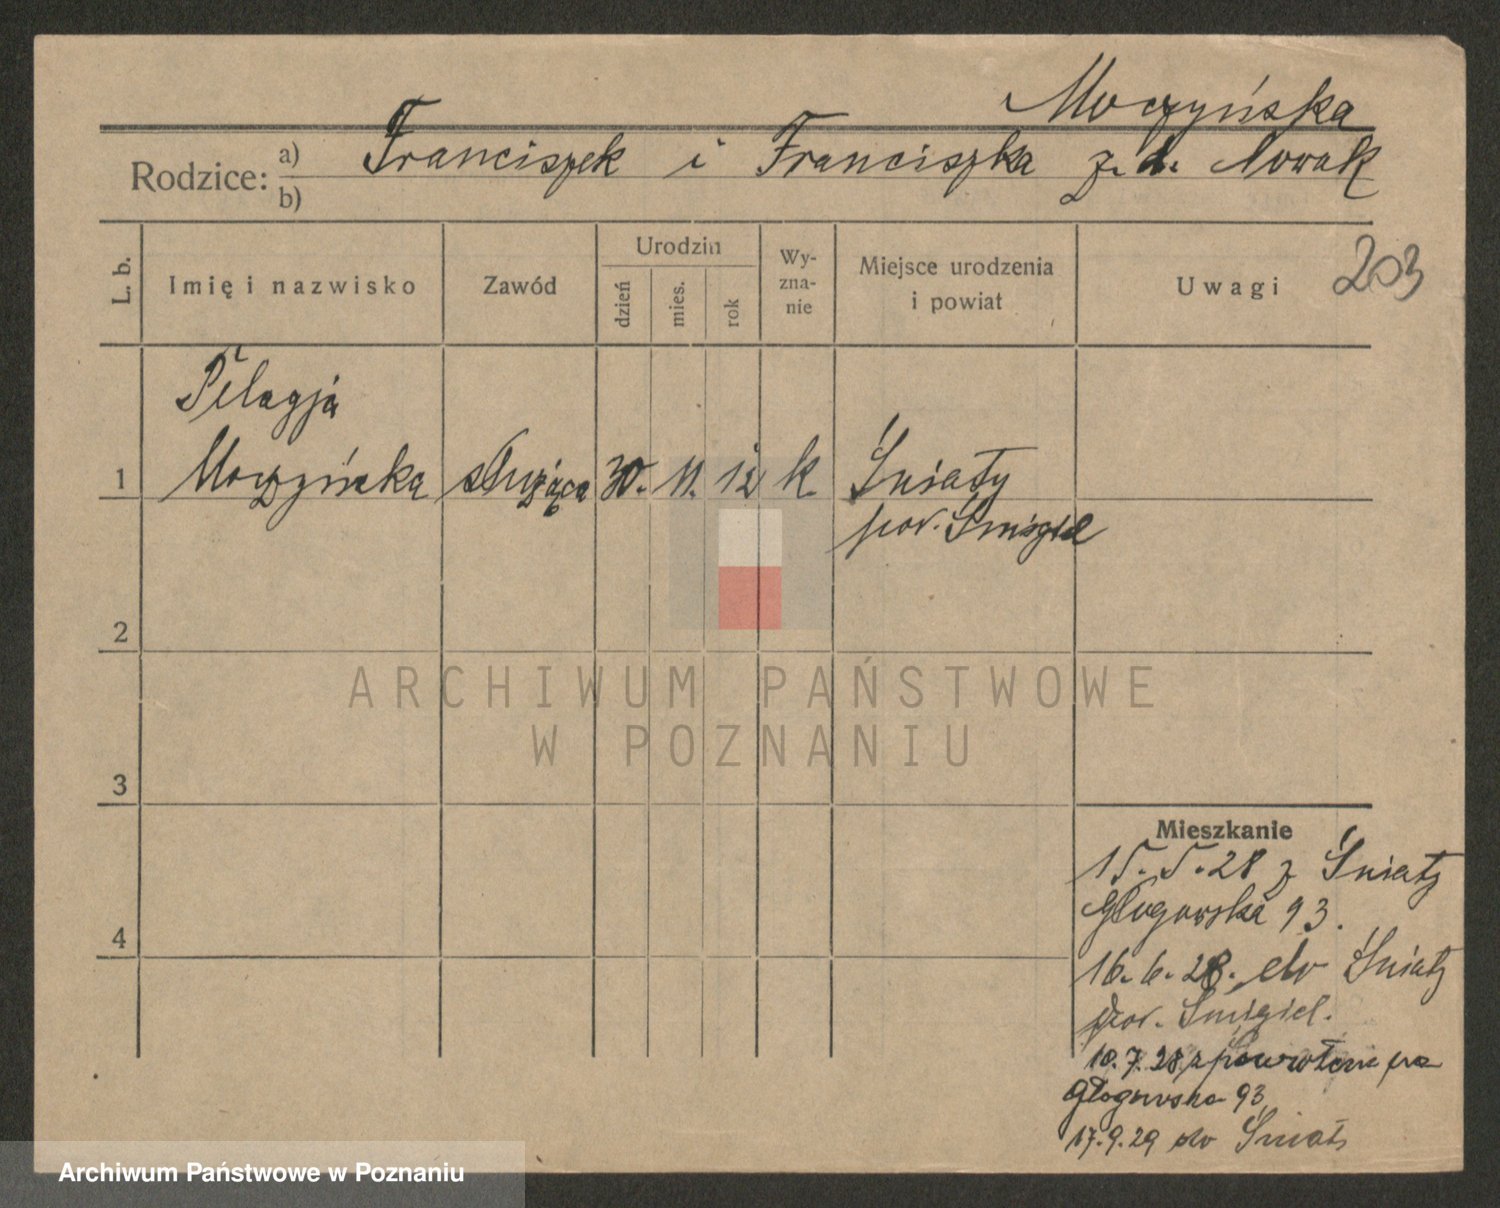 Moczyńska
Rodzice: a) Franciszek i Franciszka z. d. Nowak
b)
L. b.
Imię i nazwisko
Zawód
Urodzin
dzień
mies.
rok
Wy-
zna-
nie
Miejsce urodzenia
i powiat
Uwagi
203
Pelagja
1 Moczyńska służąca 30. 11. 12 k. Śniaty
pow. Śmigiel
2
3
4
ARCHIWUM PAŃSTWOWE
W POZNANIU
Mieszkanie
15. 5. 28 z Śniaty
Głogowska 93.
16. 6. 28. do Śniaty
pow. Śmigiel.
10. 7. 28. z powrotem na
Głogowska 93
17. 9. 29 do Śniaty
Archiwum Państwowe w Poznaniu